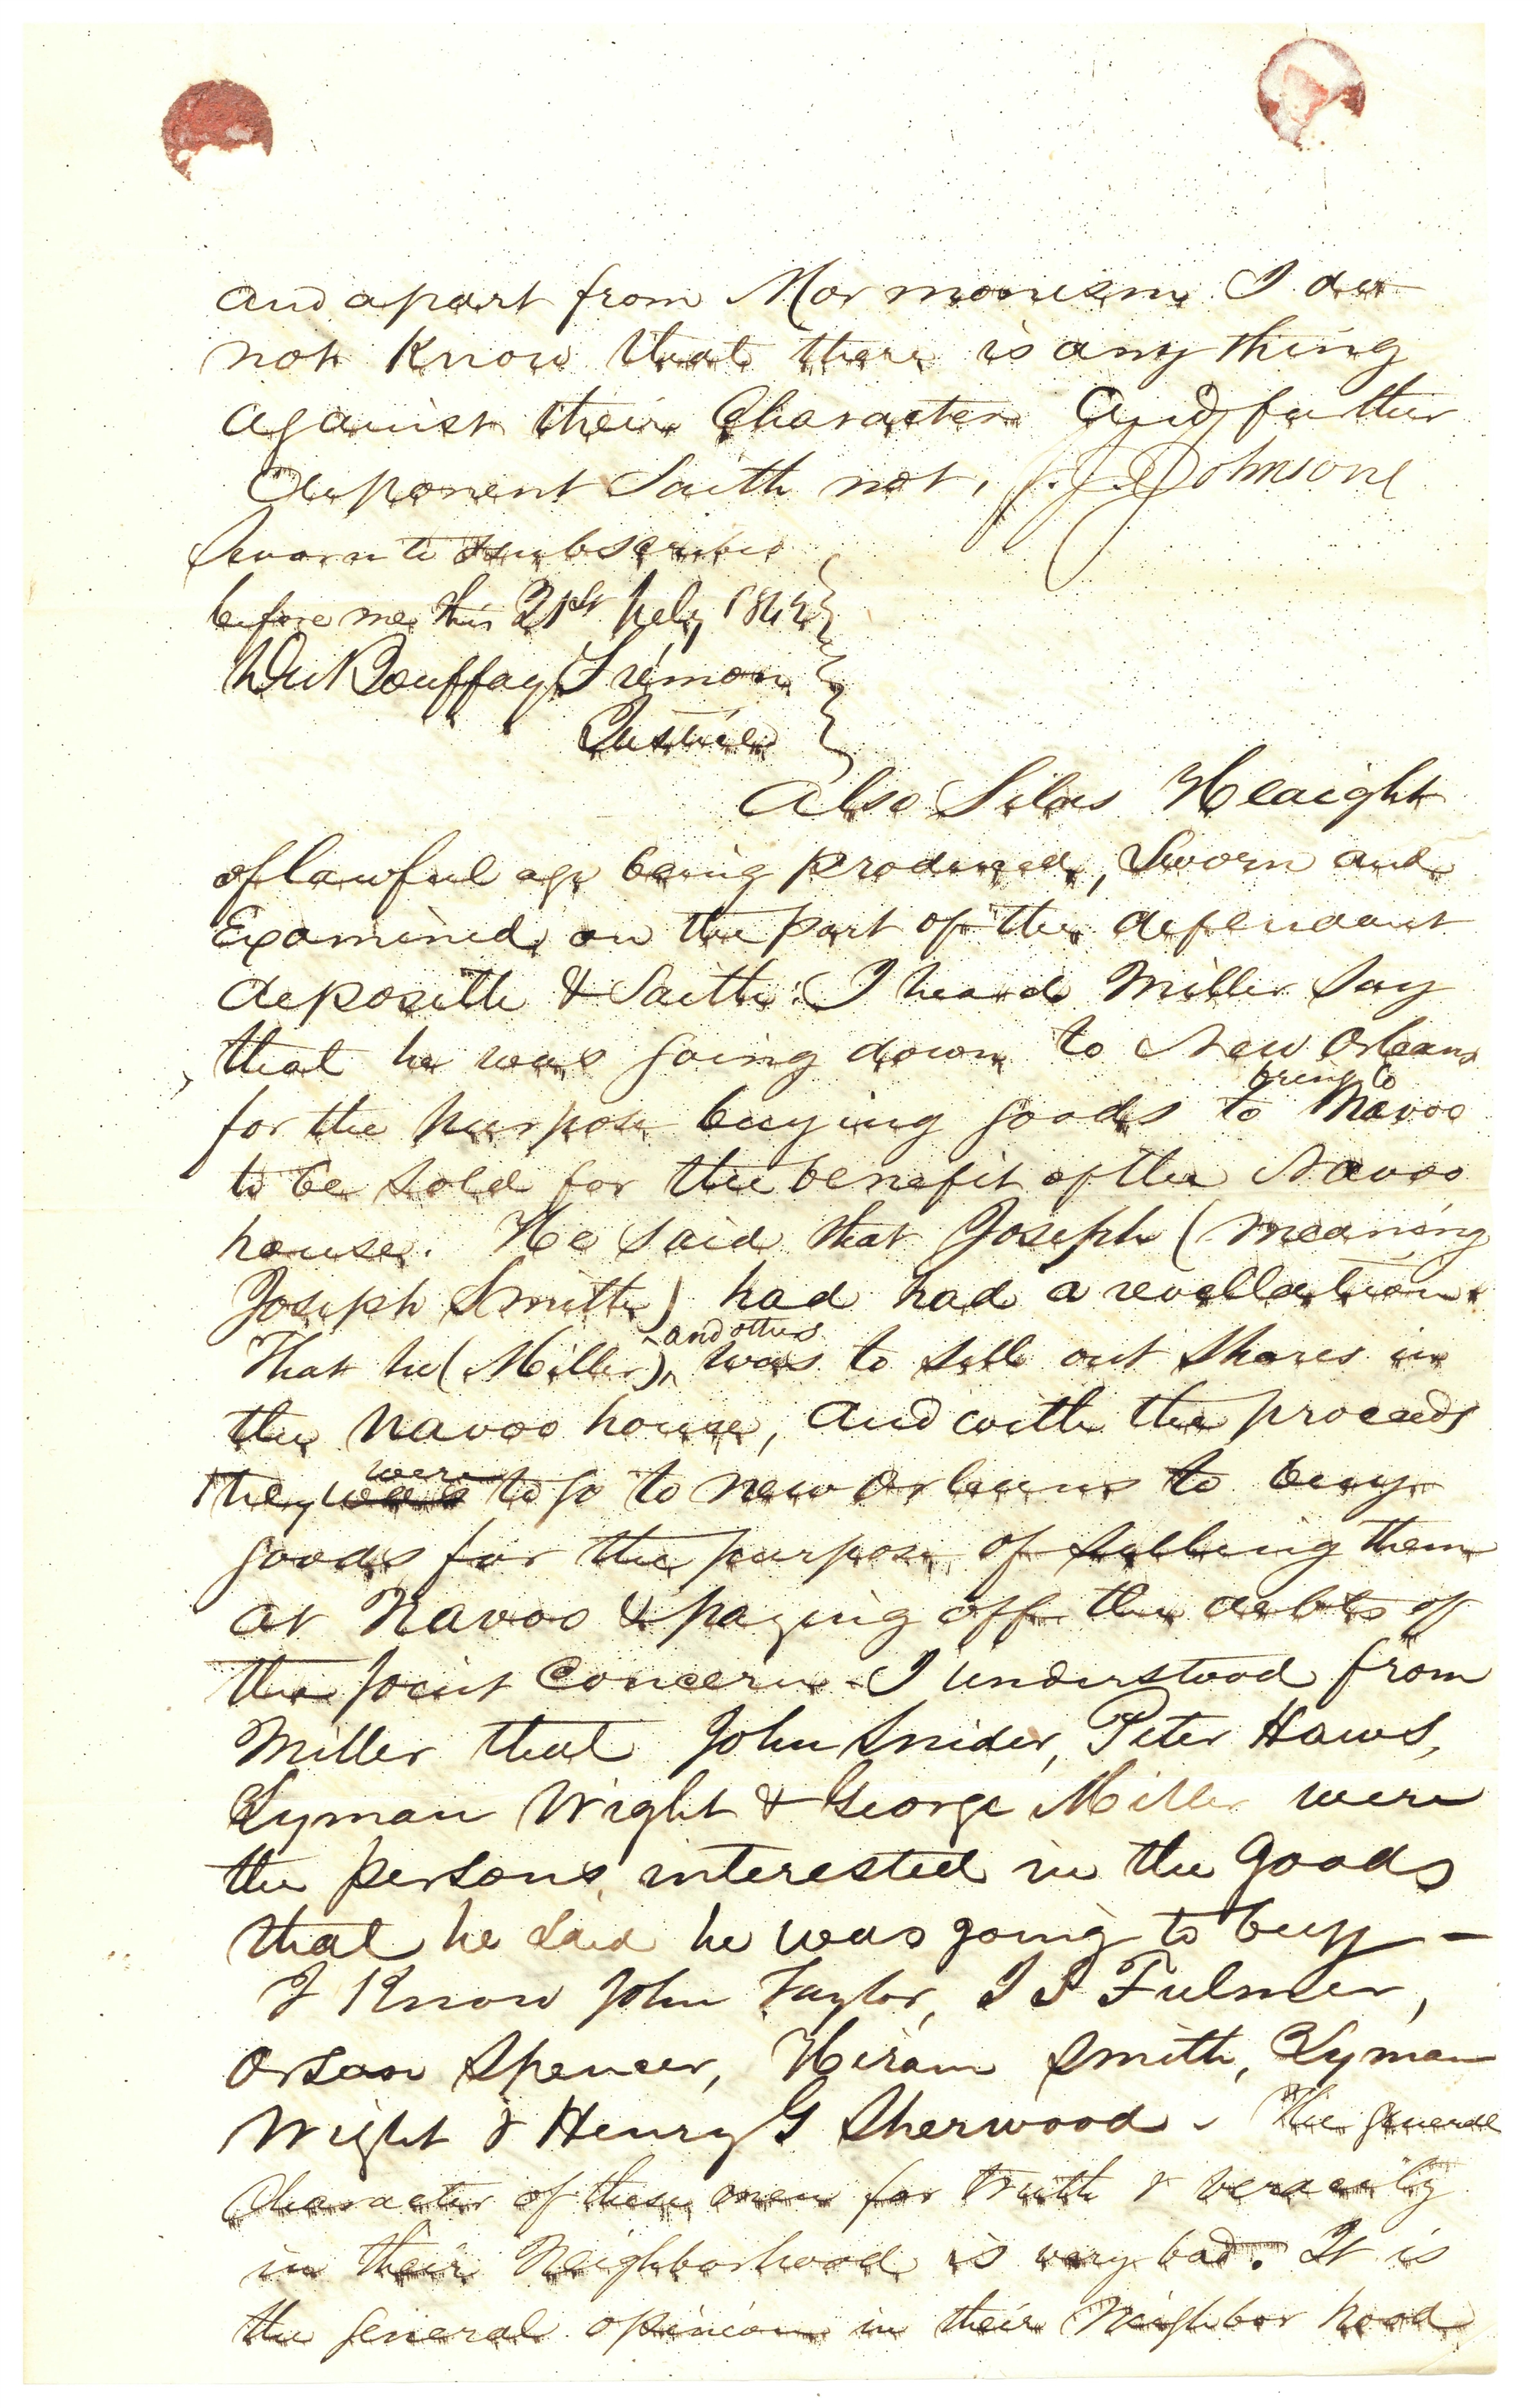 and apart from Mormonism I do
not Know that there is any thing
against their Character and further
deponent Saith not, J. Johnson
Sworn to & subscribed
before me this 21st July 184
Bouffay Fremon
Justice
Also Silas Haight
of lawful age being produced, Sworn and
Examined, on the part of the defendant
deposeth & Saith: I heard Miller Say
that he was going down to New Orleans
bring to
for the purpose buying goods to Navoo
to be sold for the benefit of the Navoo
house. He said that Joseph (meaning
Joseph Smith) had had a revellation.
and others
That he (Miller) was to sell out shares in
the Navoo house, and with the proceeds
were
they was to go to new orleans to buy
goods for the purpose of selling them
at Navoo & paying off the debts of
the joint Concern - I understood from
Miller that John Snider, Peter Haws,
Lyman Wright & George Miller were
the persons interested in the goods
that he said he was going to buy -
I Know John Taylor, J S Fulmer,
Orson Spencer, Hiram Smith, Lyman
Wight & Henry G Sherwood. The general
Character of these men for truth & veracity
in their Neighborhood is very bad. It is
the general opinion in their Neighbor hood